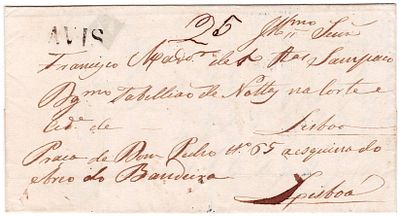 AVIS
25
Illmo Snr
Francisco de Sampaio
Dgmo Tabellião de Nottas na Corte e
Cide. de Lisboa
Praça de Dom Pedro No. 65 a esquina do
Arco do Bandeira
Lisboa